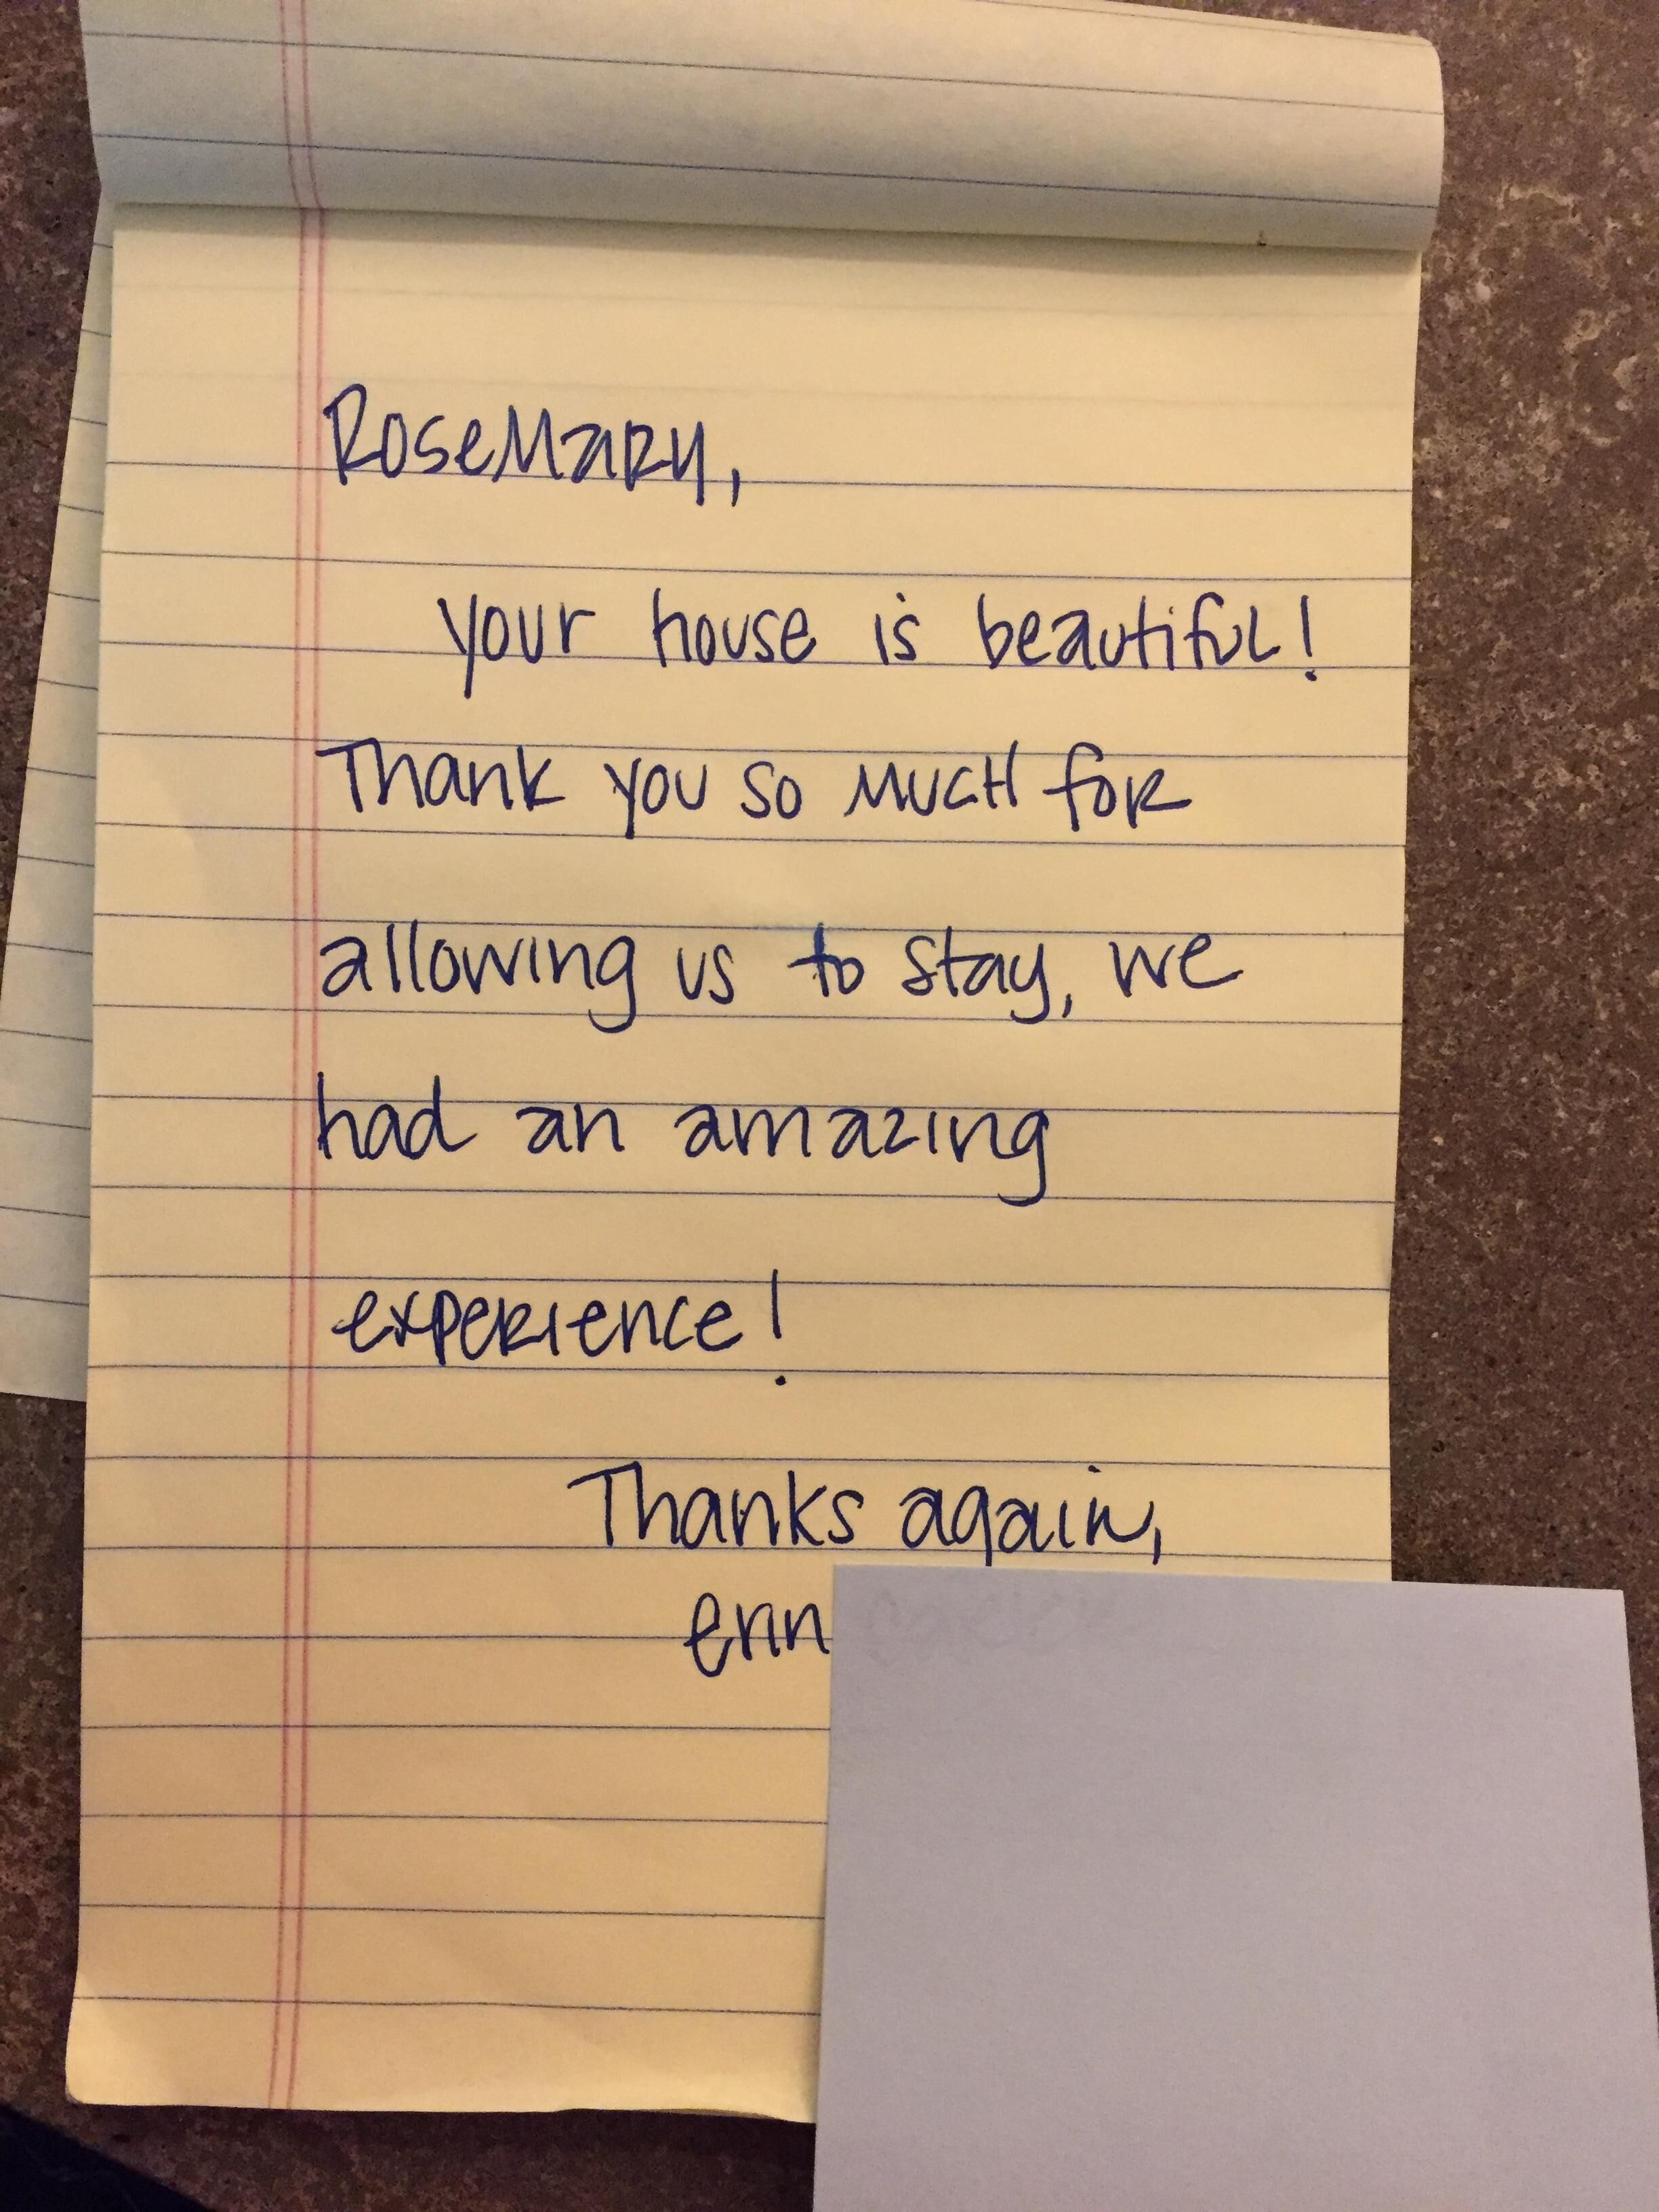 RoseMaRy,
your house is beautiful!
Thank you so MUCH foR
allowing us to stay, we
had an amazing
expeRience!
Thanks again,
erin